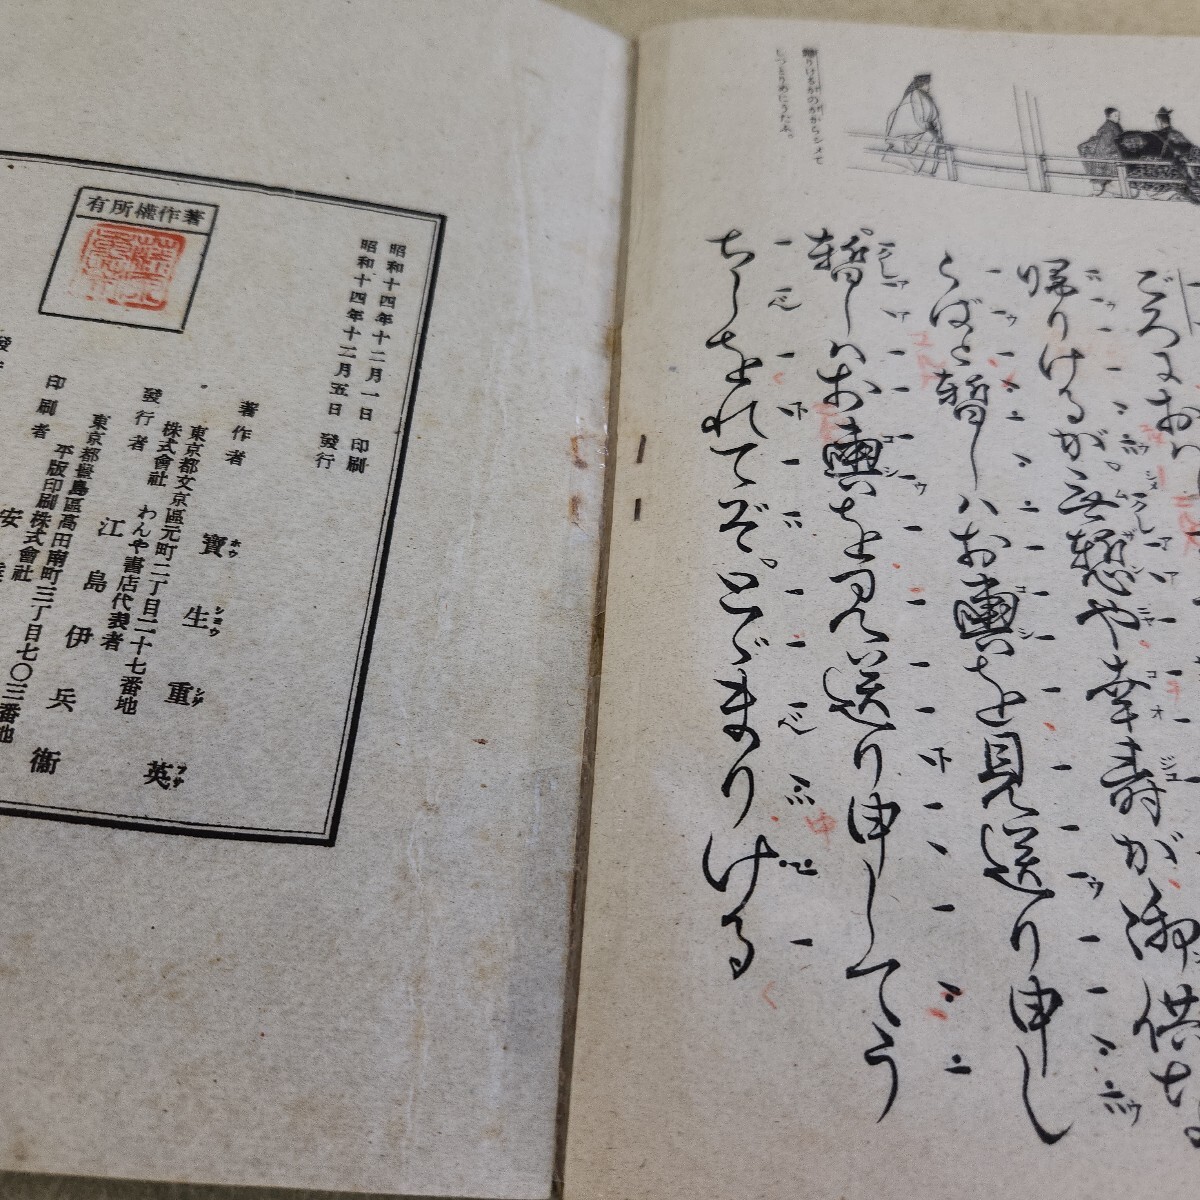 帰りけるがのががらシメて
しつとりめにうたふ。
ごろにお
帰りけるが。無慙や幸壽が御供
らばと暫しハお輿を見送り申し
暫しハお輿を見送り申してう
ちしをれてぞ。とゞまりける
著作權所有
昭和十四年十二月一日印刷
昭和十四年十二月五日發行
著作者
寶生重英
ホウシヨウシゲフサ
東京都文京區元町二丁目二十七番地
株式會社わんや書店代表者
發行者
江島伊兵衞
東京都豊島區高田南町三丁目七〇三番地
平版印刷株式會社
印刷者
安